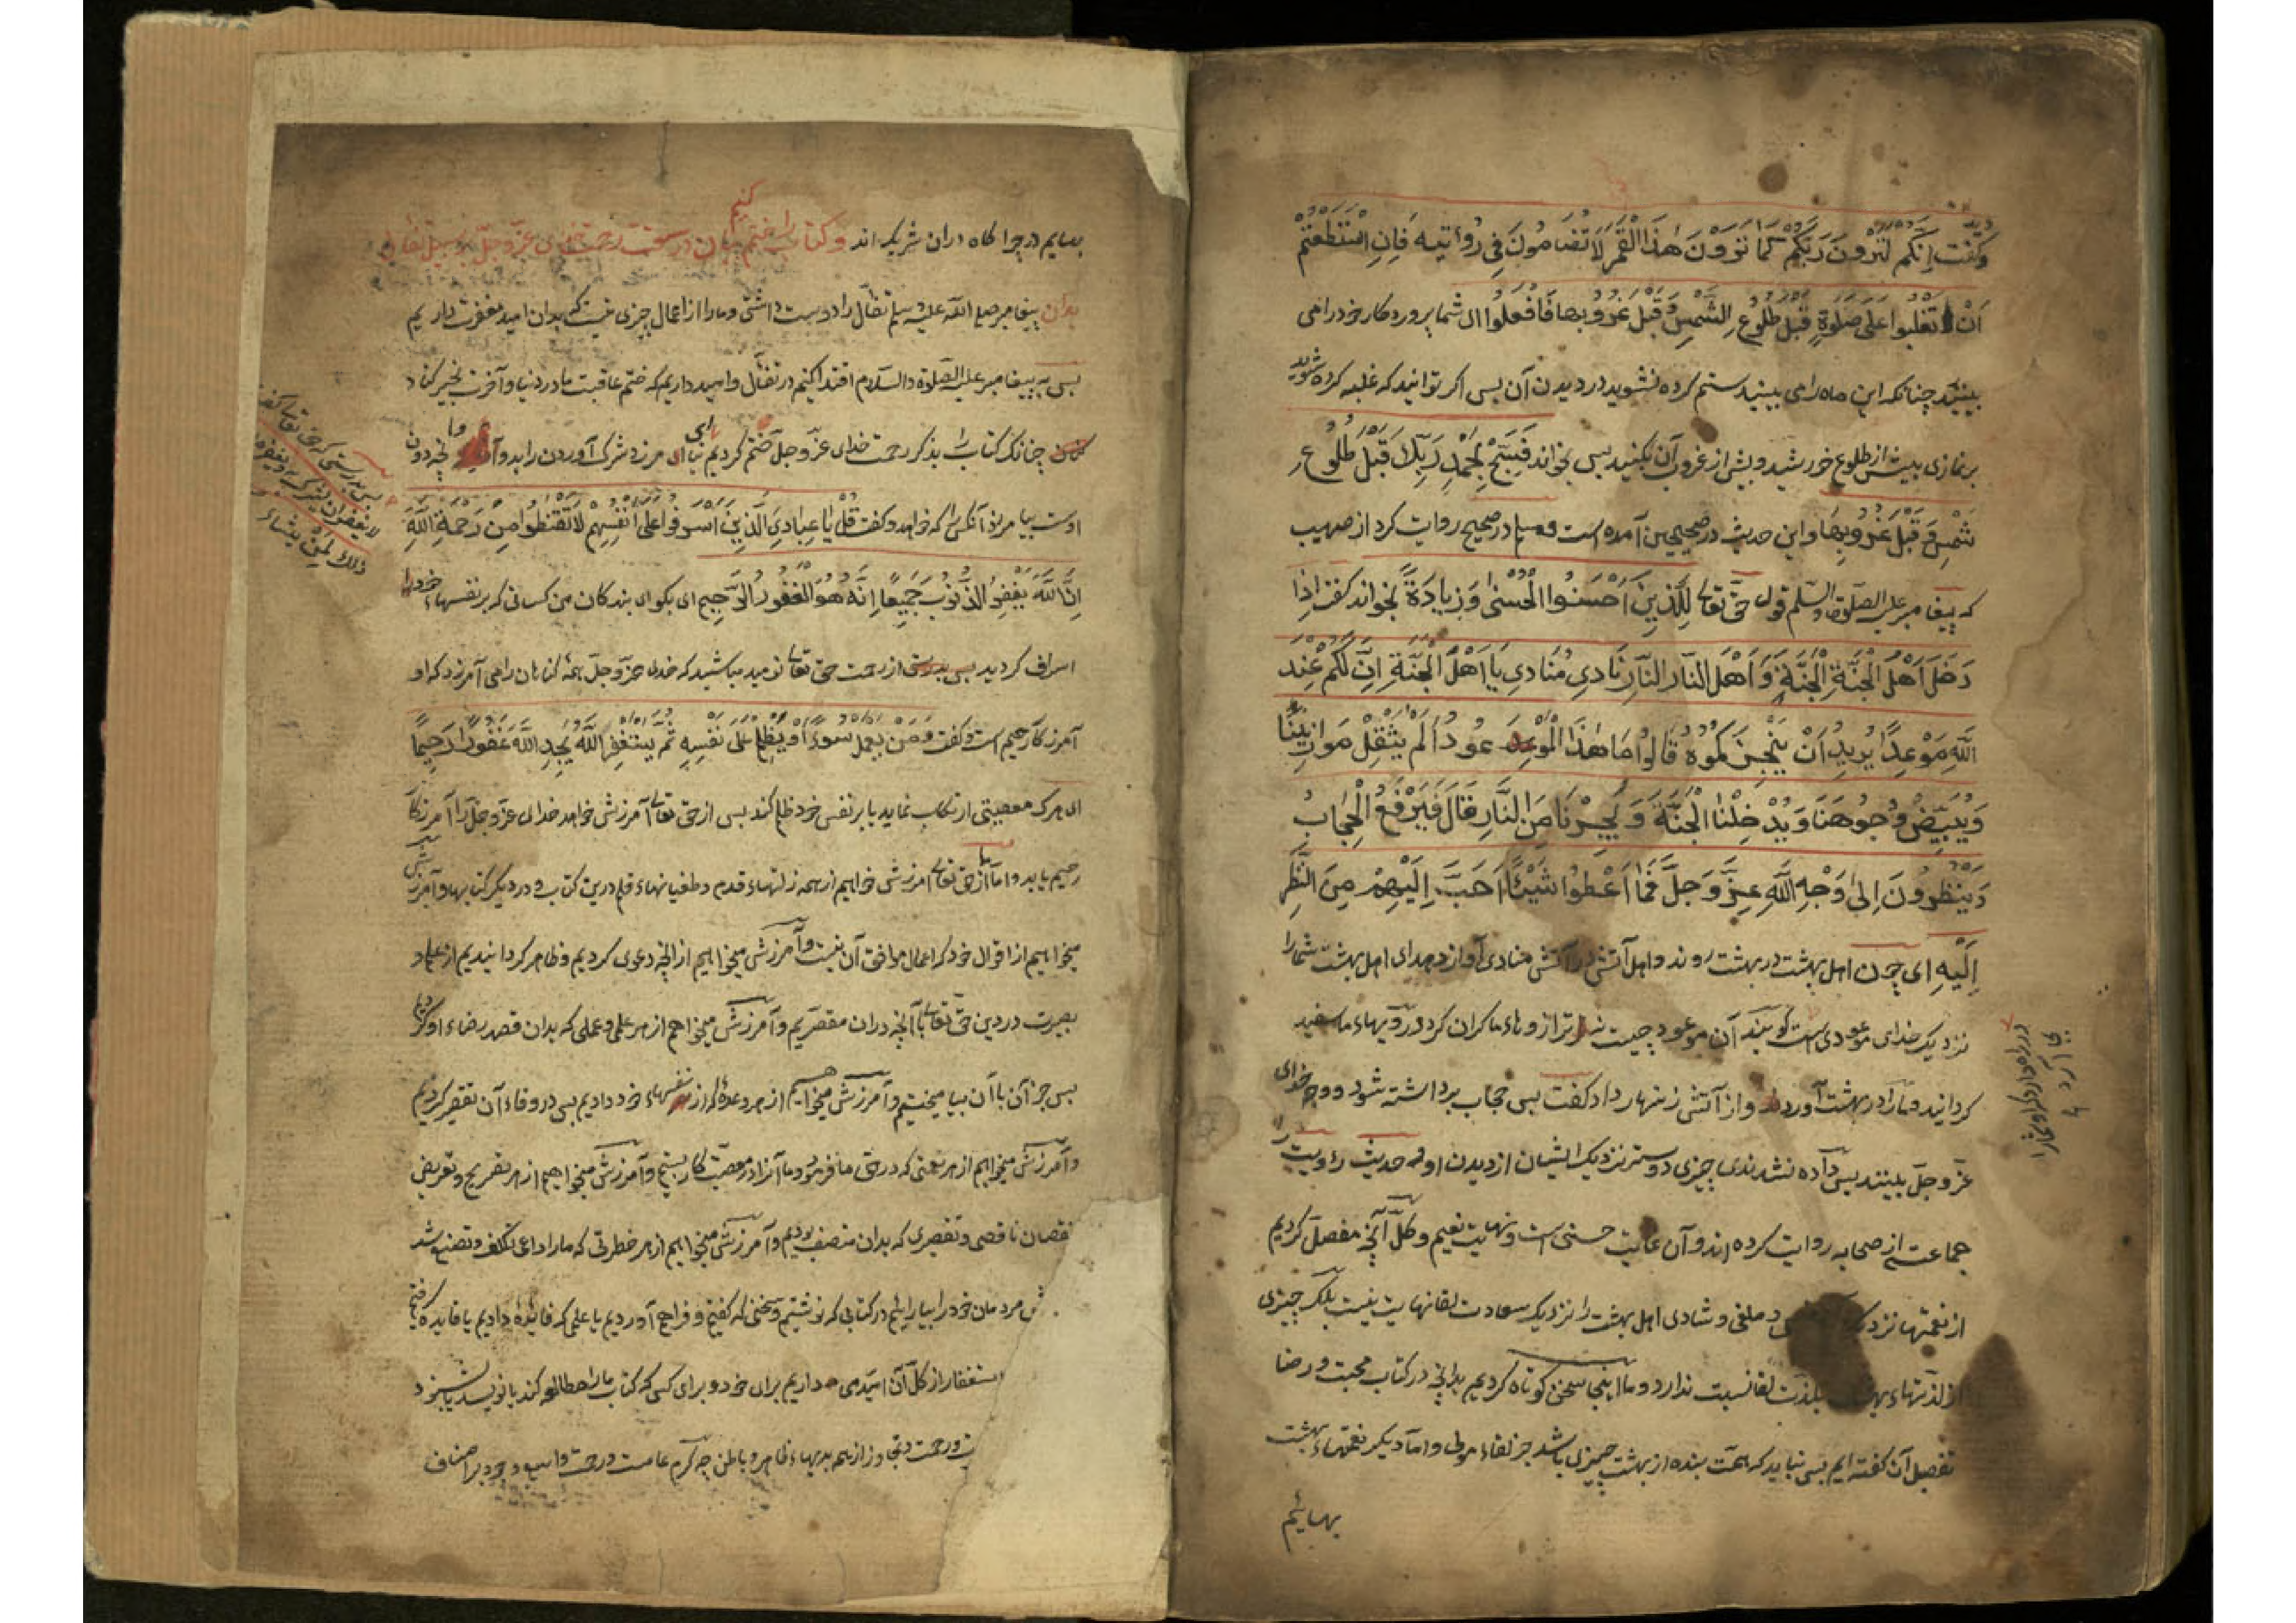 وگفت إِنَّكُمْ لَتَرَوْنَ رَبَّكُمْ كَمَا تَرَوْنَ هٰذَا الْقَمَرَ لَا تَضَامُونَ فِي رُؤْيَتِهِ فَإِنِ اسْتَطَعْتُمْ
اَنْ لا تغلبوا علی صلوةٍ قَبْلَ طُلُوعِ الشَّمْسِ وَقَبْلَ غُرُوبِها فَافْعَلُوا ای شما پروردکار خود را می
بینید چنانکه این ماه را می بینید ستم کرده نشوید در دیدن آن بس اکر توانید که غلبه کرده نشوید
بر نمازی بیش از طلوع خورشید و بیش از غروب آن بکنید بس بخواند فَسَبِّحْ بِحَمْدِ رَبِّكَ قَبْلَ طُلُوعِ
شَّمْسِ وَقَبْلَ غُرُوبِهَا واین حدیث در صحیحین آمده است ومسلم در صحیح روایت کرد از صهیب
که پیغامبر علیه الصلوة والسلم قول حق تعالی لِلَّذِينَ أَحْسَنُوا الْحُسْنٰى وَزِيَادَةٌ بخواند گفت إِذَا
دَخَلَ أَهْلُ الْجَنَّةِ الْجَنَّةَ وَأَهْلُ النَّارِ النَّارَ نَادٰی مُنَادِي يَا أَهْلَ الْجَنَّةِ إِنَّ لَكُمْ عِنْدَ
اللَّهِ مَوْعِدًا يُرِيدُ أَنْ يُنْجِزَكُمُوهُ قَالُوا مَا هٰذَا الْمَوْعُودُ أَلَمْ يُثَقِّلْ مَوَازِينَنَا
وَيُبَيِّضْ وُجُوهَنَا وَيُدْخِلْنَا الْجَنَّةَ وَيُجِرْنَا مِنَ النَّارِ قَالَ فَيُرْفَعُ الْحِجَابُ
وَيَنْظُرُونَ إِلٰى وَجْهِ اللَّهِ عَزَّ وَجَلَّ فَمَا أُعْطُوا شَيْئًا أَحَبَّ إِلَيْهِمْ مِنَ النَّظَرِ
إِلَيْهِ ای چون اهل بهشت در بهشت روند واهل آتش در آتش منادی آواز دهد ای اهل بهشت شما را
نزدیک خدای موعودی است کویند آن موعود چیست نه ترازوهاء ما کران کرد ورویهاء ما سفید
کردانید ومارا در بهشت آورد واز آتش زنهار داد کفت بس حجاب برداشته شود ووجه خدای
عزّ وجلّ ببینند بس داده نشدندی چیزی دوستر نزدیک ایشان از دیدن او وحدیث رؤیت را
جماعتی از صحابه روایت کرده اند وآن غایت حسنی است ونهایت نعیم وکلّ آنچه مفصل کردیم
از نعمتها نزدیک ملغی وشادی اهل بهشت را نزدیک سعادت لقا نهایت نیست بلکه چیزی
از لذتهاء بهشت بلذت لقا نسبت ندارد وما اینجا سخن کوتاه کردیم بدانچه در کتاب محبت ورضا
تفصیل آن کفته ایم بس نباید که همت بنده از بهشت چیزی باشد جز لقاء مولی واما دیکر نعمتهاء بهشت
بهایم
بهایم در چراکاه دران شریک اند وکتاب را ختم کنیم در سعت رحمت خدای عزّ وجلّ بر سبیل تفأل
بدان پیغامبر صلی الله علیه وسلم تفأل را دوست داشتی ومارا از اعمال چیزی نیست که بدان امید مغفرت داریم
بس به پیغامبر علیه الصلوة والسلام اقتدا کنیم در تفأل وامید داریم که ختم عاقبت ما در دنیا وآخرت بخیر کناد
چنانکه کتاب را بذکر رحمت خدای عزّ وجلّ ختم کردیم مرزد شرک آوردن را بدو وآنچه دون
اوست بیامرزد آنکس را که خواهد وکفت قُلْ يَا عِبَادِيَ الَّذِينَ أَسْرَفُوا عَلٰى أَنْفُسِهِمْ لَا تَقْنَطُوا مِنْ رَحْمَةِ اللَّهِ
إِنَّ اللَّهَ يَغْفِرُ الذُّنُوبَ جَمِيعًا إِنَّهُ هُوَ الْغَفُورُ الرَّحِيمُ ای بکو ای بندکان من کسانی که بر نفسهاء خود
اسراف کردید از رحمت حق تعالی نومید مباشید که خدای عزّ وجلّ همه کناهان را می آمرزد که او
آمرزکار رحیم است وکفت وَمَنْ يَعْمَلْ سُوءًا أَوْ يَظْلِمْ عَلٰى نَفْسِهِ ثُمَّ يَسْتَغْفِرِ اللَّهَ يَجِدِ اللَّهَ غَفُورًا رَحِيمًا
ای هرکه معصیتی ارتکاب نماید یا بر نفس خود ظلم کند بس از حق تعالی آمرزش خواهد خدای عزّ وجلّ را آمرزکار
رحیم یابد واما از حق تعالی امرزش خواهیم از همه زلتهاء قدم وطغیانهاء قلم درین کتاب ودر دیکر کتابها وآمرزش
میخواهیم از اقوال خود که اعمال موافق آن نیست وآمرزش میخواهیم از آنچه دعوی کردیم وظاهر کردانیدیم از علم و
بصیرت در دین حق تعالی با آنچه دران مقصریم وآمرزش میخواهیم از هر علمی وعملی که بدان قصد رضاء او کردیم
بس جز آن با آن بیامیختیم وآمرزش میخواهیم از هر وعده که از نفسهاء خود دادیم بس در وفاء آن تقصیر کردیم
وآمرزش میخواهیم از هر نعمتی که در حق ما فرمود وما آنرا در معصیت کار بستیم وآمرزش میخواهیم از هر تصریح وتعریض
نقصان ناقصی وتقصیری که بدان متصف بودیم وآمرزش میخواهیم از هر خطرتی که ما را داعی تکلف وتصنع شد
مردمان خود را بیاراییم در کتابی که نوشتیم وسخنی که کفتیم وفراهم آوردیم یا علمی که فایده دادیم یا فایده کرفتیم
ستغفار از کل آن امید می داریم برای خود وبرای کسی که کتاب ما را مطالعه کند یا نویسد یا بشنود
ورحمت وتجاوز از همه بدیهاء ظاهر وباطن چه کرم عامست ورحمت واسع وجود بر اصناف